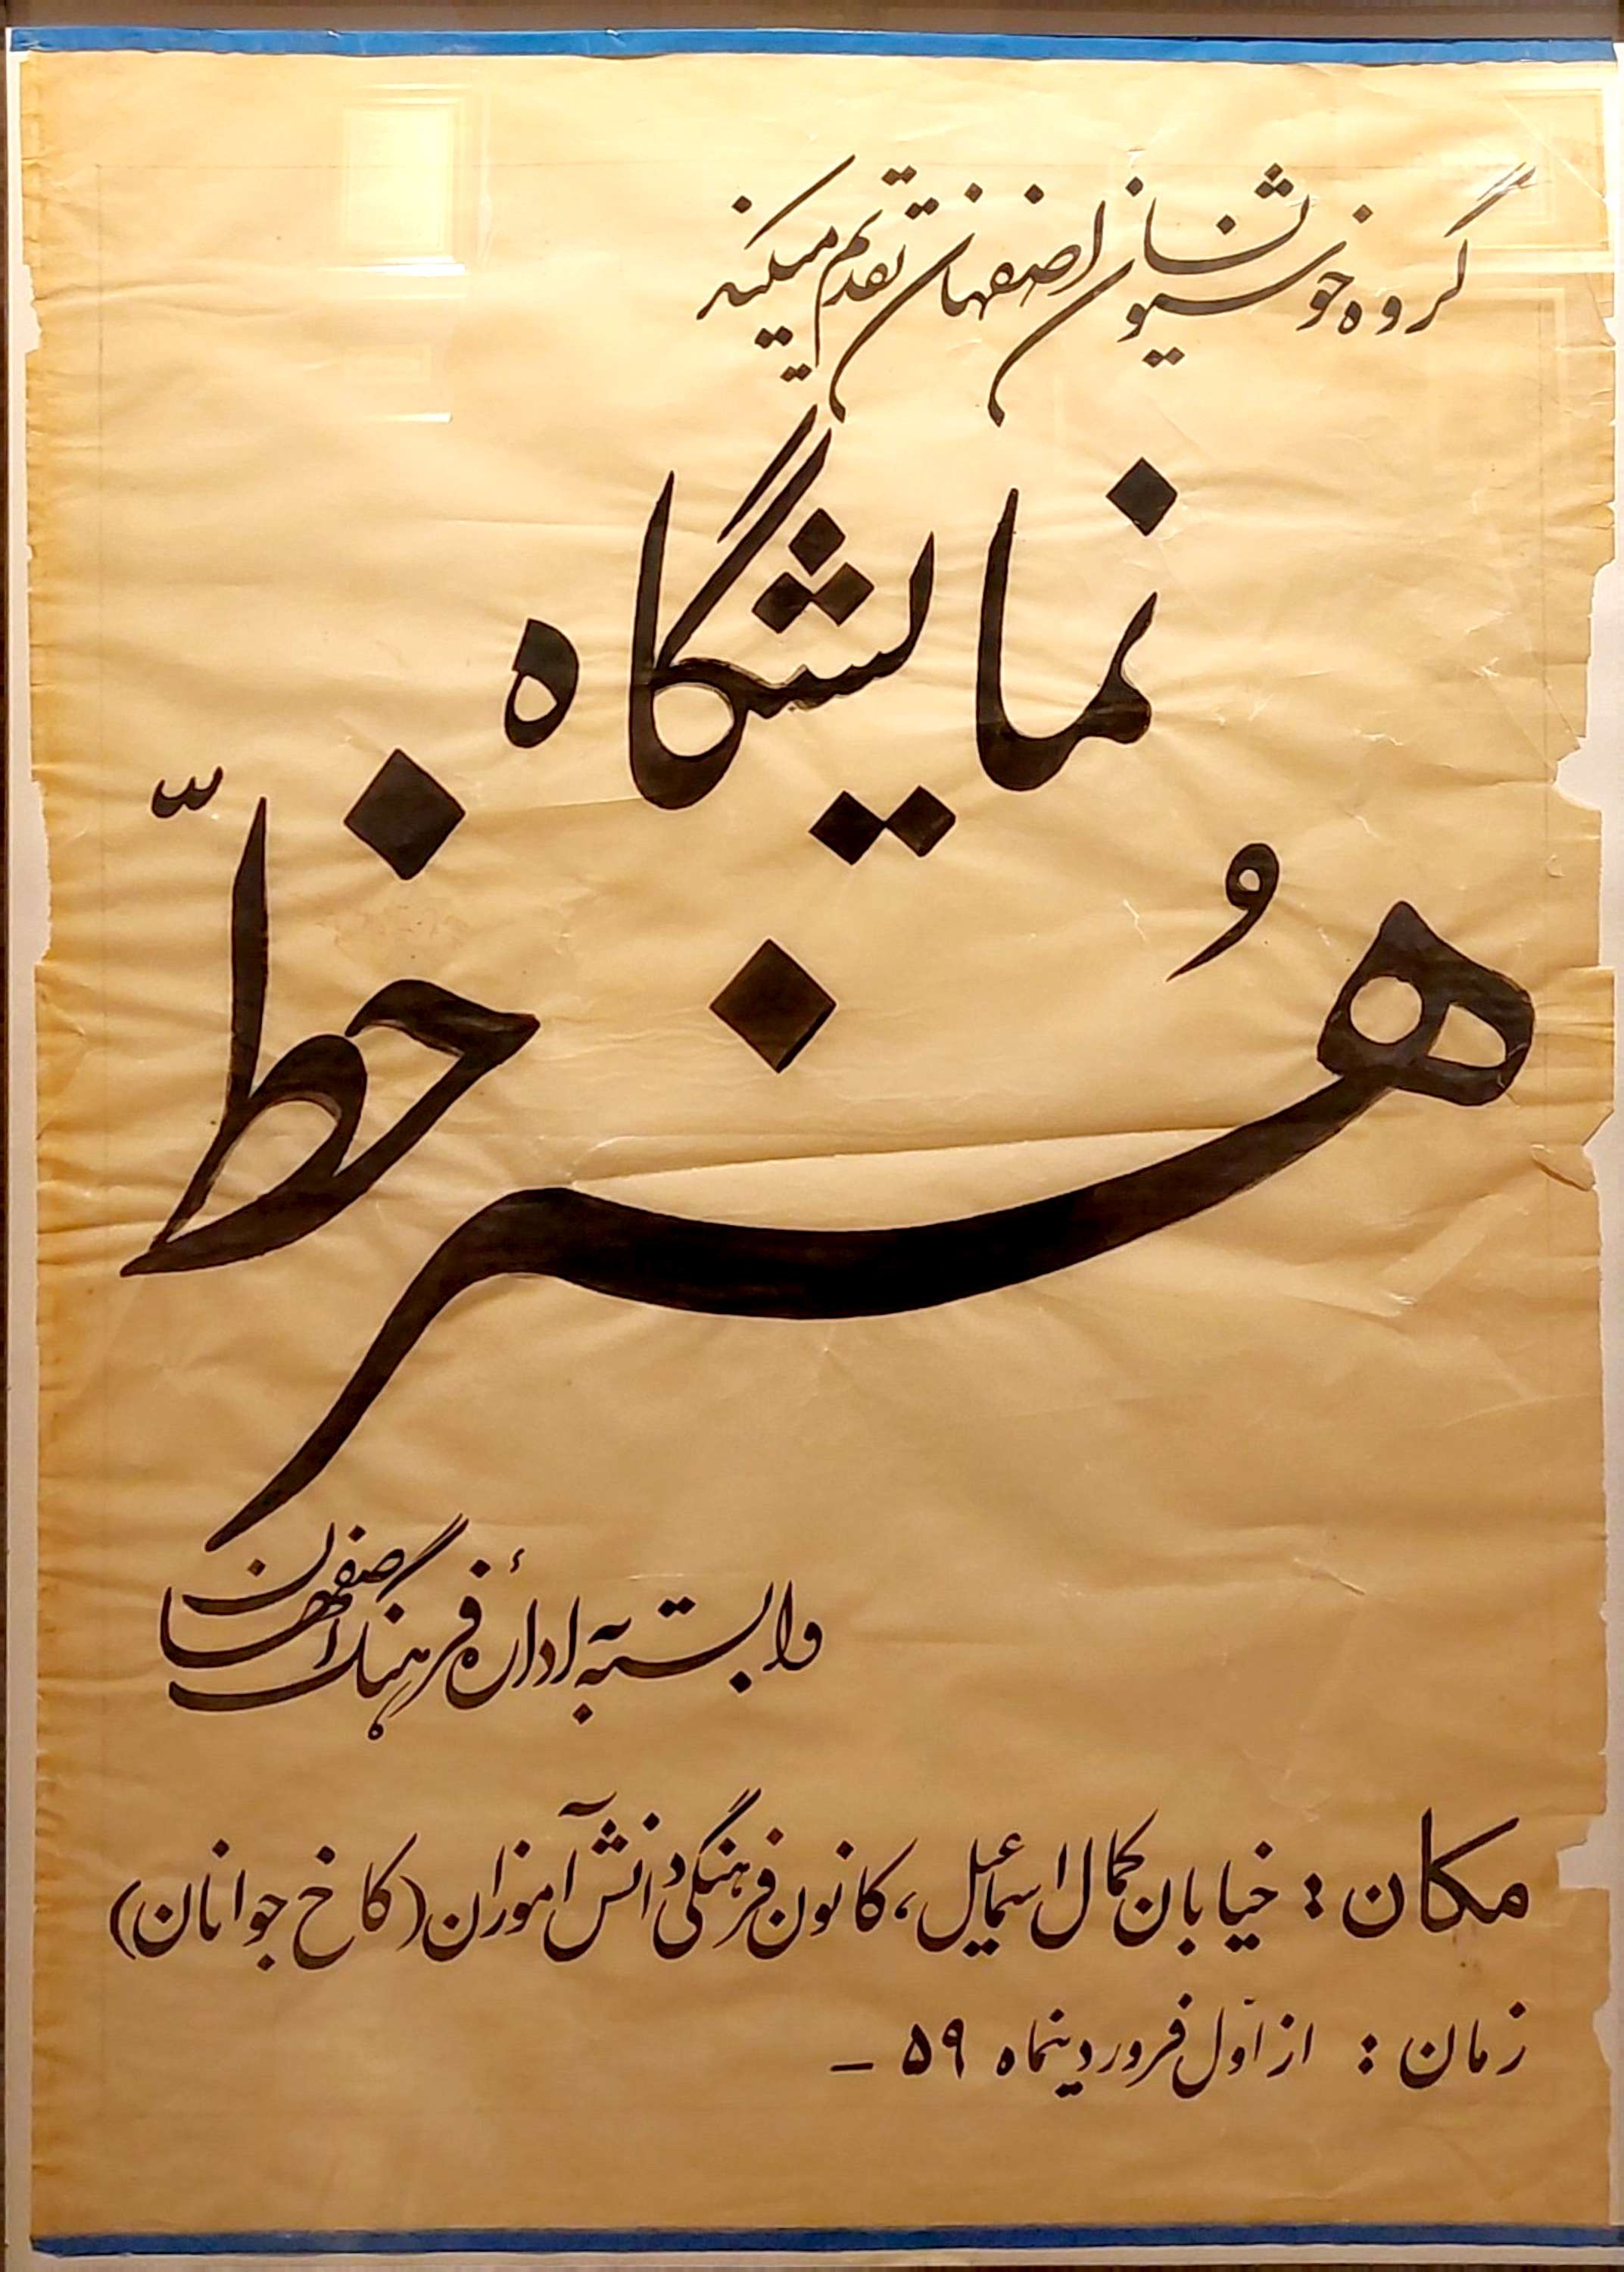 گروه خوشنویسان اصفهان تقدیم میکند
نمایشگاه
هُنر خطّ
وابسته به ادارهٔ فرهنگ اصفهان
مکان : خیابان کمال اسماعیل، کانون فرهنگی دانش آموزان (کاخ جوانان)
زمان : از اوّل فروردینماه ۵۹ –